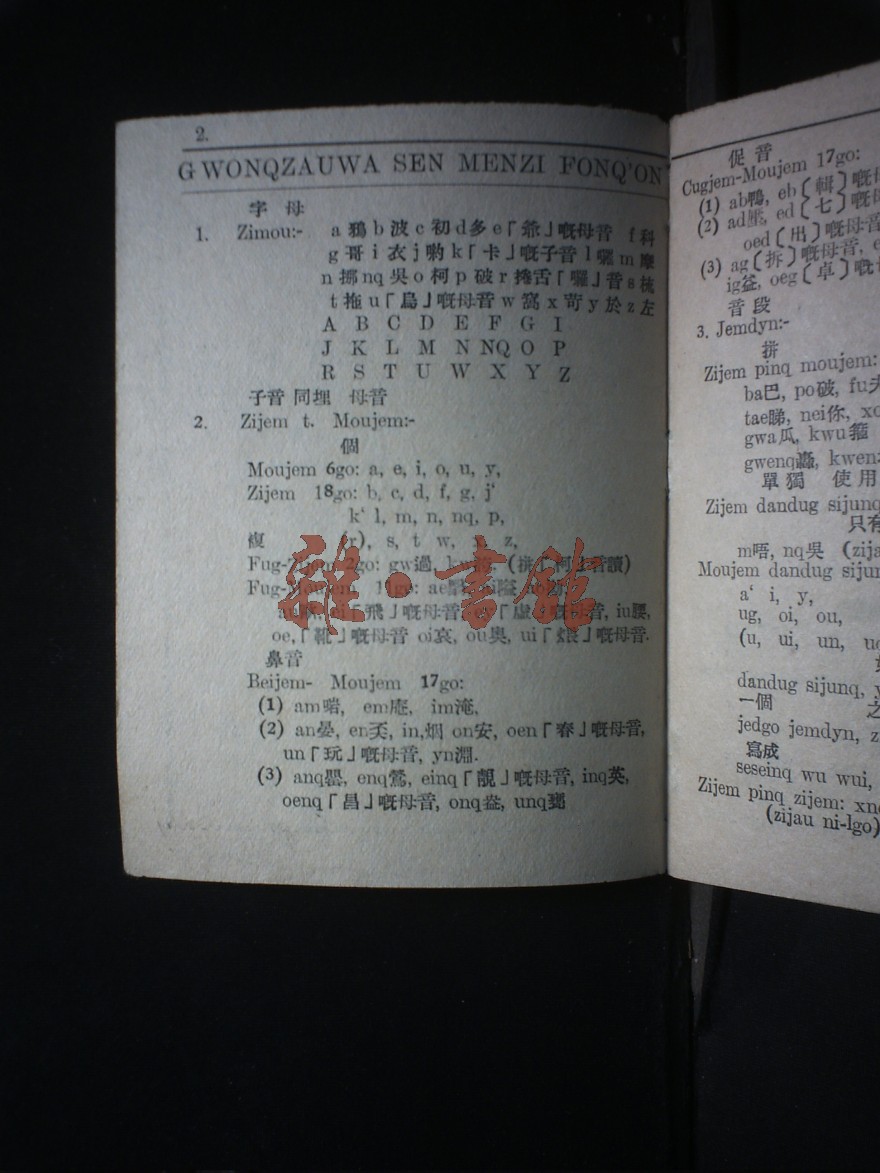 2.
GWONQZAUWA SEN MENZI FONQ'ON
字 母
1. Zimou:- a 鴉 b 波 c 初 d 多 e「爺」嘅母音 f 科
g 哥 i 衣 j 喲 k「卡」嘅子音 l 囉 m 摩
n 挪 nq 吳 o 柯 p 破 r 捲舌「囉」音 s 梳
t 拖 u「烏」嘅母音 w 窩 x 苛 y 於 z 左
A B C D E F G I
J K L M N NQ O P
R S T U W X Y Z
子音 同埋 母音
2. Zijem t. Moujem:-
個
Moujem 6go: a, e, i, o, u, y,
Zijem 18go: b, c, d, f, g, j‘
k‘ l, m, n, nq, p,
複 (r), s, t w, x, z,
Fug-Zijem 2go: gw過,
Fug-Moujem
「飛」嘅母音, 「虛」嘅母音, iu腰,
oe,「靴」嘅母音 oi哀, ou奥, ui「煨」嘅母音.
鼻音
Beijem- Moujem 17go:
(1) am啱, em庵, im淹,
(2) an晏, en奀, in,烟 on安, oen「春」嘅母音,
un「玩」嘅母音, yn淵.
(3) anq罌, enq鶯, einq「靚」嘅母音, inq英,
oenq「昌」嘅母音, onq盎, unq甕
雜·書館
促音
Cugjem-Moujem 17go:
(1) ab鴨, eb〔輯〕嘅母
(2) ad壓, ed〔七〕嘅母
oed〔出〕嘅母音
(3) ag〔拆〕嘅母音, e
ig益, oeg〔卓〕嘅
音段
3. Jemdyn:-
拼
Zijem pinq moujem:
ba巴, po破, fu夫
tae睇, nei你, xo
gwa瓜, kwu箍
gwenq轟, kwen
單獨 使用
Zijem dandug sijunq
只有
m唔, nq吳 (zija
Moujem dandug sijun
a‘ i, y,
ug, oi, ou,
(u, ui, un, uq
dandug sijunq, y
一個 之
jedgo jemdyn, z
寫成
seseinq wu wui,
Zijem pinq zijem: xnq
(zijau ni-1go)